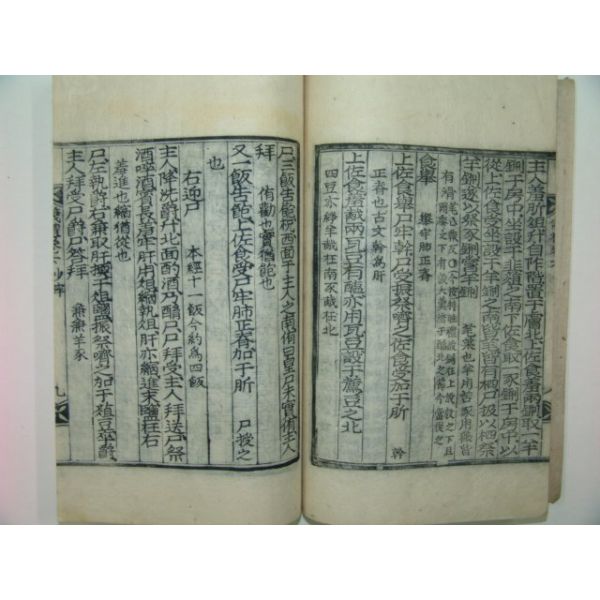 主人羞肵俎升自阼階置于膚北上佐食羞兩鉶取一羊
鉶于房中坐設于韭菹之南下佐食取一豕鉶于房中以
從上佐食受坐設于羊鉶之南皆芼皆有柶尸扱以柶祭
羊鉶遂以祭豕鉶嘗羊鉶
食擧 擧牢肺正脊
上佐食擧尸牢幹尸受振祭嚌之佐食受加于肵 幹
正脊也古文幹爲肝
上佐食羞胾兩瓦豆有醢亦用瓦豆設于薦豆之北
四豆亦絳羊胾在南豕胾在北
尸三飯告飽祝西面于主人之南侑曰皇尸未實侑主人
拜 侑勸也實猶飽也
又一飯告飽上佐食受尸牢肺正脊加于肵 尸授之
也
右迎尸 本經十一飯今約爲四飯
主人降洗爵升北面酌酒乃酳尸尸拜受主人拜送尸祭
酒啐酒賓長羞牢肝用俎縮執俎肝亦縮進末鹽在右
羞進也縮猶從也
尸左執爵右兼取肝擩于俎鹽振祭嚌之加于菹豆卒爵
主人拜受尸爵尸答拜 兼兼羊豕
九